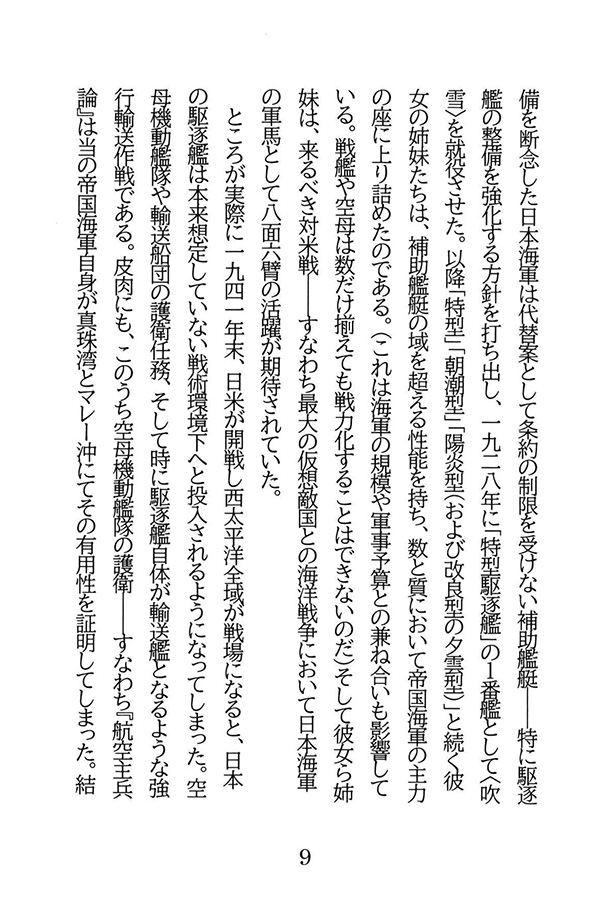 備を断念した日本海軍は代替案として条約の制限を受けない補助艦艇――特に駆逐
艦の整備を強化する方針を打ち出し、一九二八年に「特型駆逐艦」の一番艦として〈吹
雪〉を就役させた。以降「特型」「朝潮型」「陽炎型（および改良型の夕雲型）」と続く彼
女の姉妹たちは、補助艦艇の域を超える性能を持ち、数と質において帝国海軍の主力
の座に上り詰めたのである。（これは海軍の規模や軍事予算との兼ね合いも影響して
いる。戦艦や空母は数だけ揃えても戦力化することはできないのだ）そして彼女ら姉
妹は、来るべき対米戦――すなわち最大の仮想敵国との海洋戦争において日本海軍
の軍馬として八面六臂の活躍が期待されていた。
ところが実際に一九四一年末、日米が開戦し西太平洋全域が戦場になると、日本
の駆逐艦は本来想定していない戦術環境下へと投入されるようになってしまった。空
母機動艦隊や輸送船団の護衛任務、そして時に駆逐艦自体が輸送艦となるような強
行輸送作戦である。皮肉にも、このうち空母機動艦隊の護衛――すなわち『航空主兵
論』は当の帝国海軍自身が真珠湾とマレー沖にてその有用性を証明してしまった。結
9